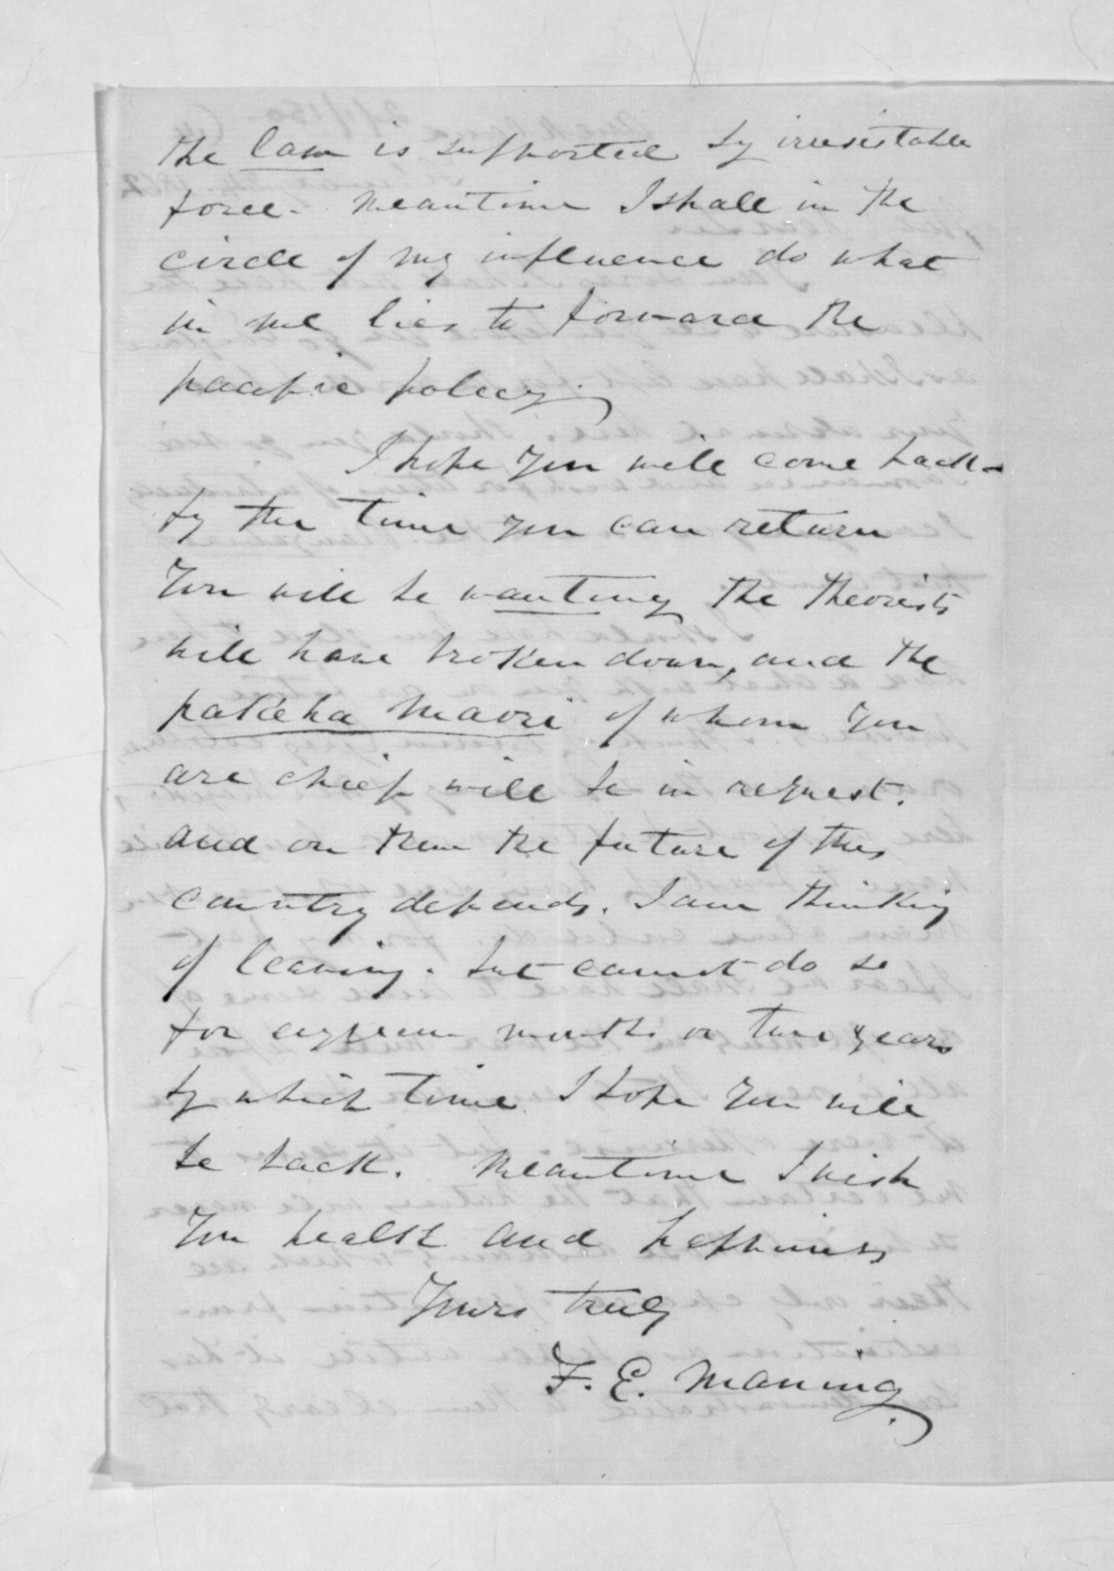 the law is supported by irresistable
force. Meantime I shall in the
circle of my influence do what
in me lies to forward the
pacific policy.
I hope you will come back -
by the time you can return
you will be wanting the theorists
will have broken down, and the
pakeha Maori of whom you
are chief will be in request.
and on them the future of this
country depends. I am thinking
of leaving. but cannot do so
for eighteen months or two years
by which time I hope you will
be back. Meantime I wish
you health and happiness
Yours truly
F. E. Maning.